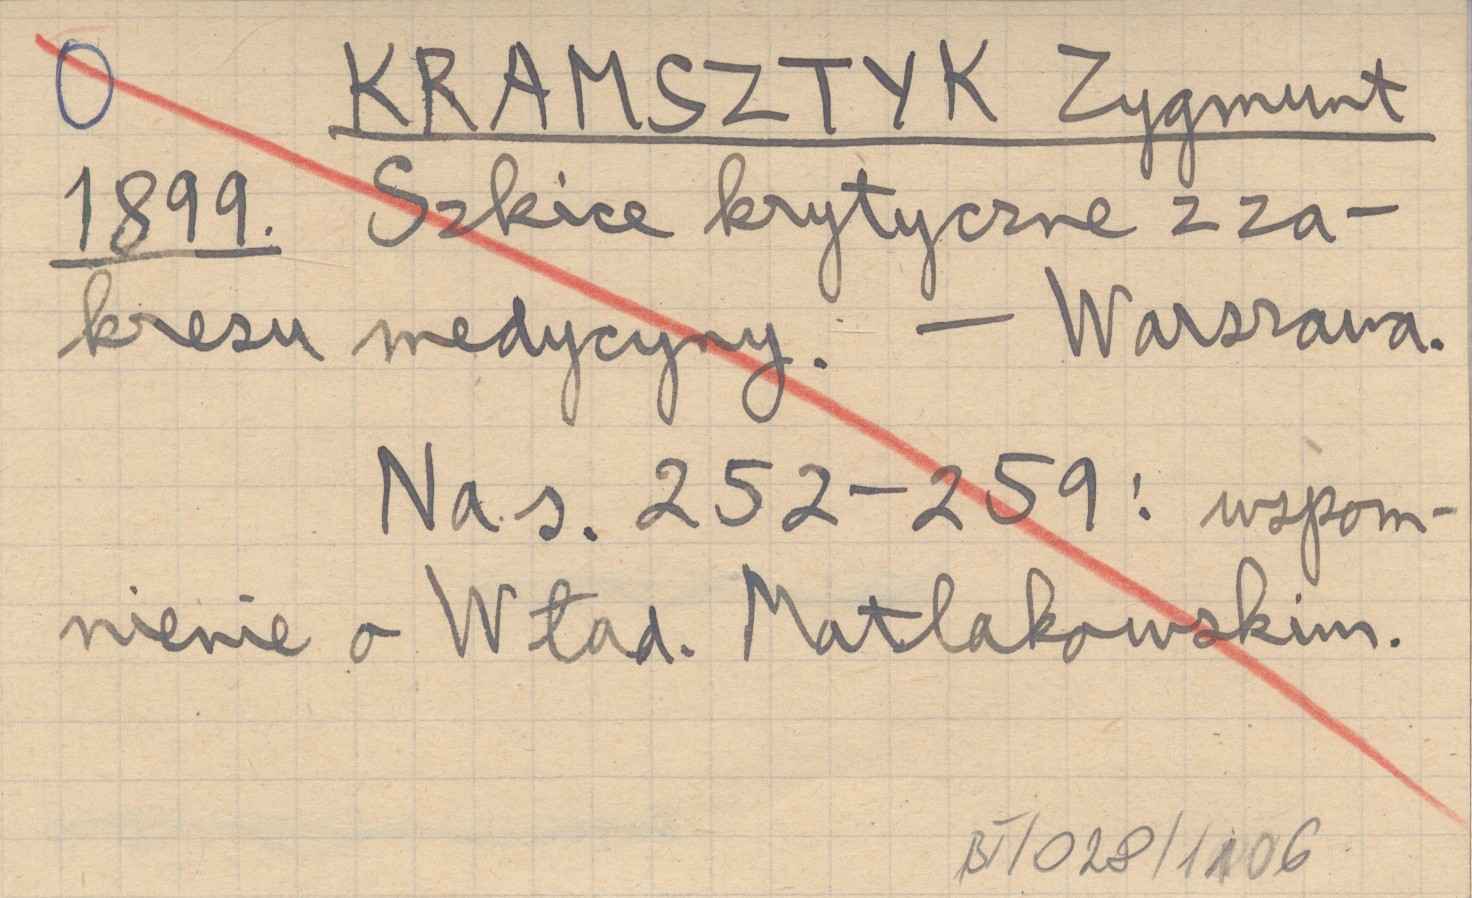 O KRAMSZTYK Zygmunt
1899. Szkice krytyczne z za-
kresu medycyny. — Warszawa.
Na s. 252-259: wspom-
nienie o Wład. Matlakowskim.
BT/028/1106